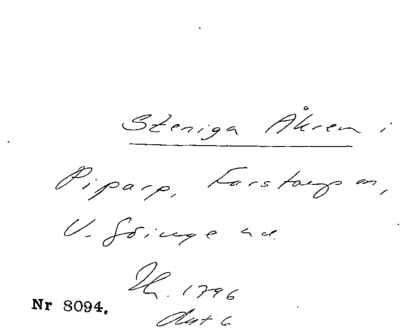 Steniga Åkren i
Piparp, Farstorps sn,
V. Göinge hd.
Th. 1796
Akt 6
Nr 8094.